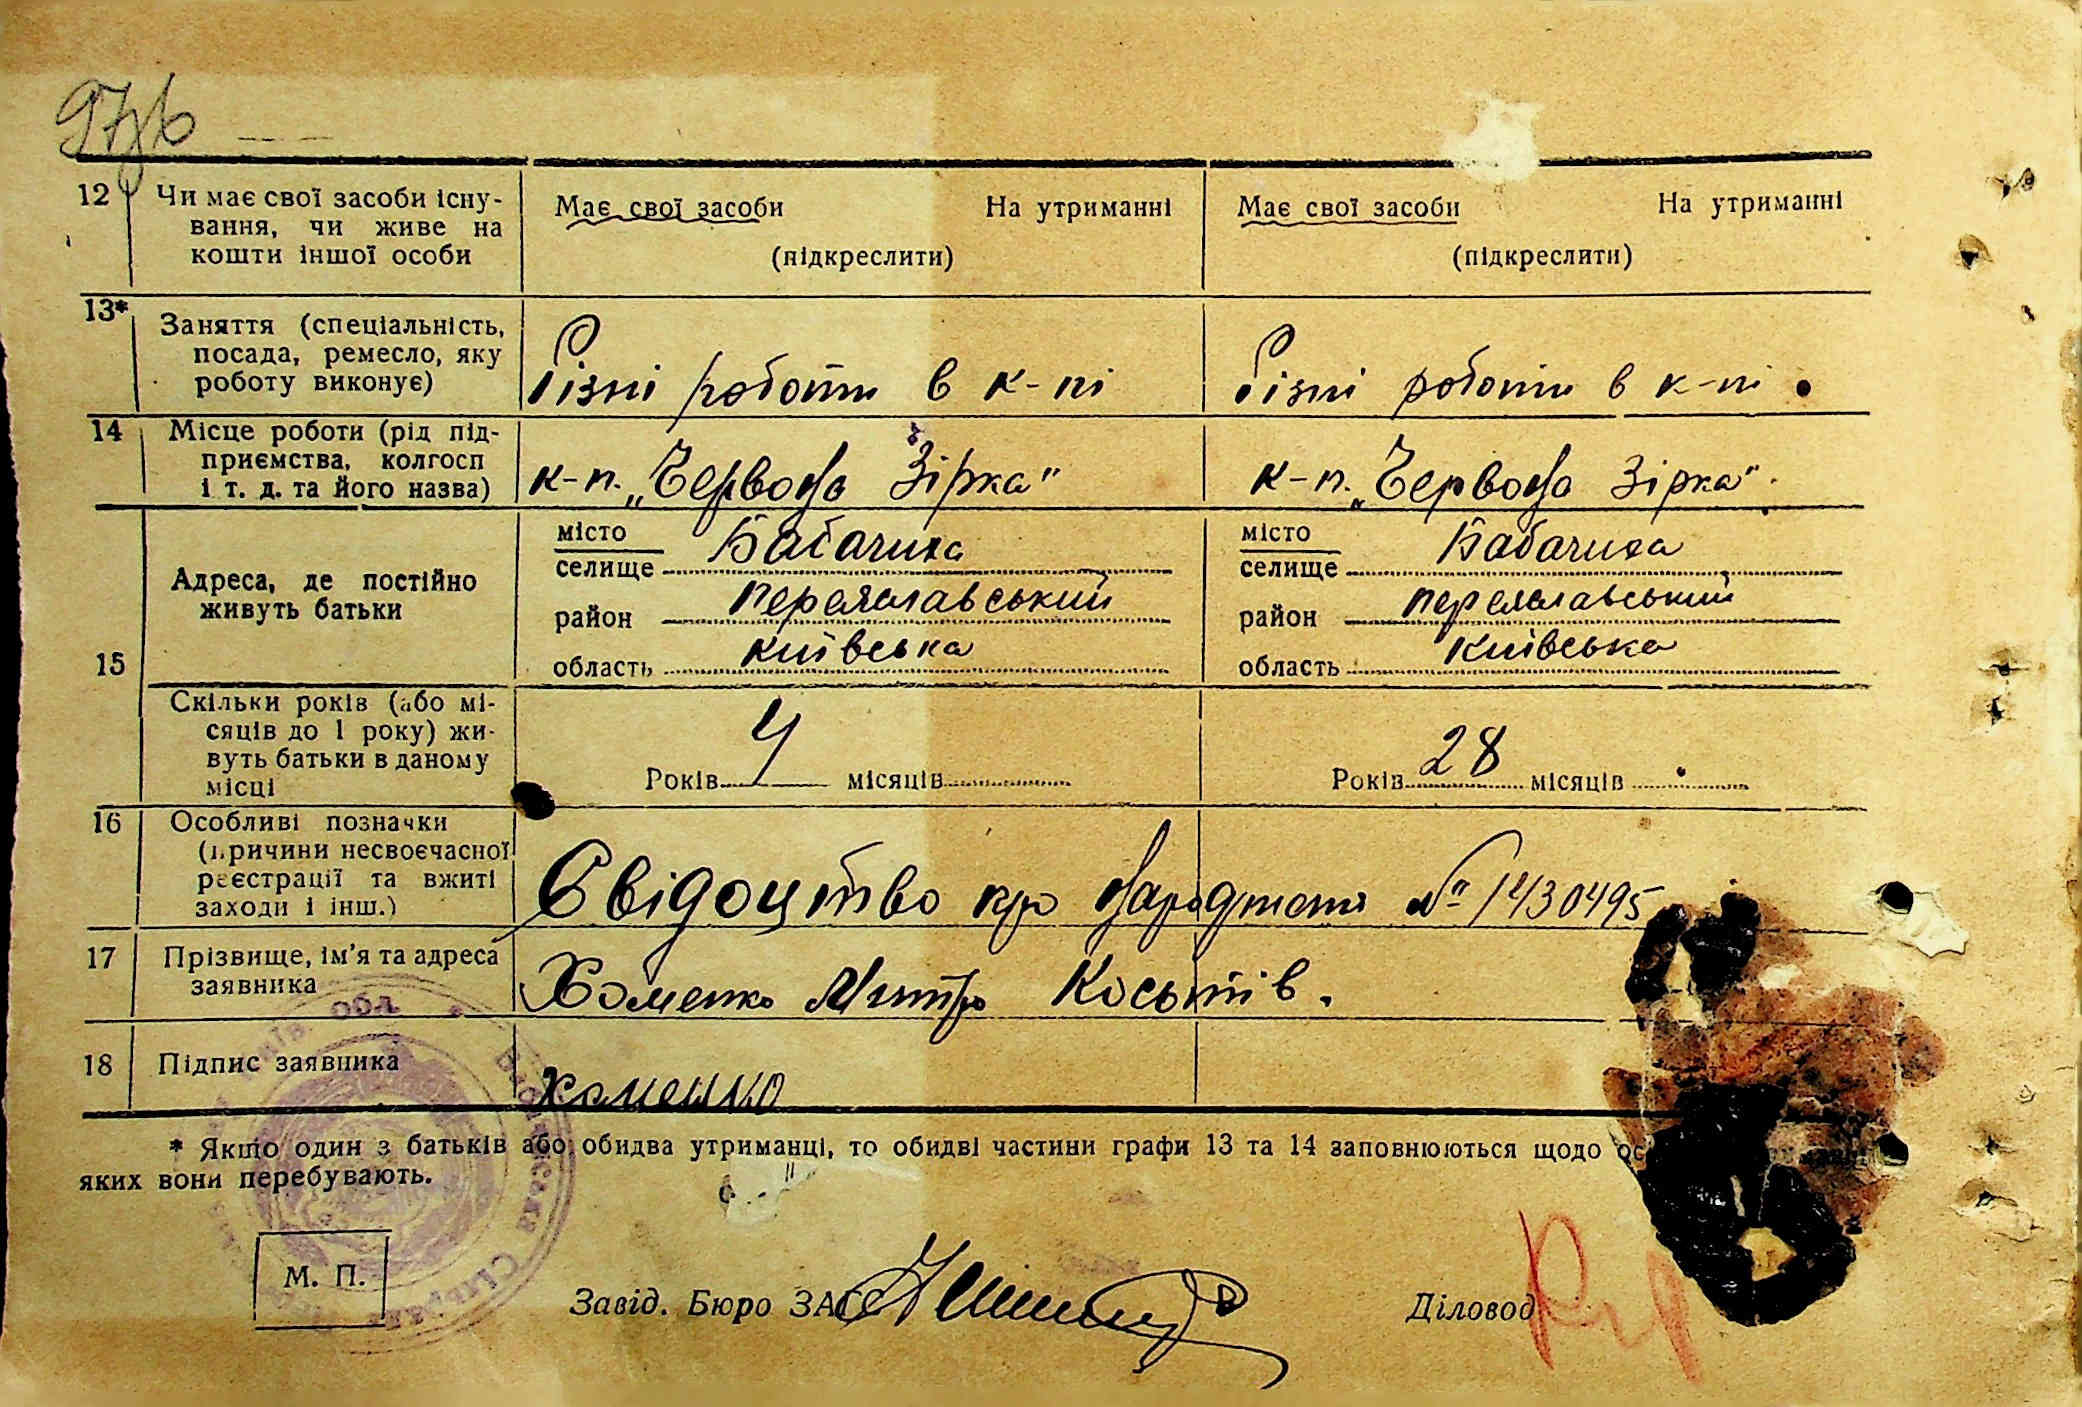 12 Чи має свої засоби існу- Має свої засоби На утриманні Має свої засоби На утриманні
вання, чи живе на
кошти іншої особи (підкреслити) (підкреслити)
13* Заняття (спеціальність,
посада, ремесло, яку
роботу виконує) Різні роботи в к-пі Різні роботи в к-пі
14 Місце роботи (рід під-
приємства, колгосп
і т. д. та його назва) к-п. „Червона Зірка" к-п. „Червона Зірка"
місто Бабачиха місто Бабачиха
селище селище
Адреса, де постійно
живуть батьки
район Переяславський район Переяславський
15 область Київська область Київська
Скільки років (або мі-
сяців до 1 року) жи-
вуть батьки в даному
місці Років 4 місяців Років 28 місяців
16 Особливі позначки
(причини несвоєчасної
реєстрації та вжиті
заходи і інш.) Свідоцтво про народження № 1430495
17 Прізвище, ім'я та адреса
заявника Хоменко Митро
18 Підпис заявника Хоменко
* Якщо один з батьків або обидва утриманці, то обидві частини графи 13 та 14 заповнюються щодо ос
яких вони перебувають.
М. П.
Завід. Бюро ЗАГС Діловод